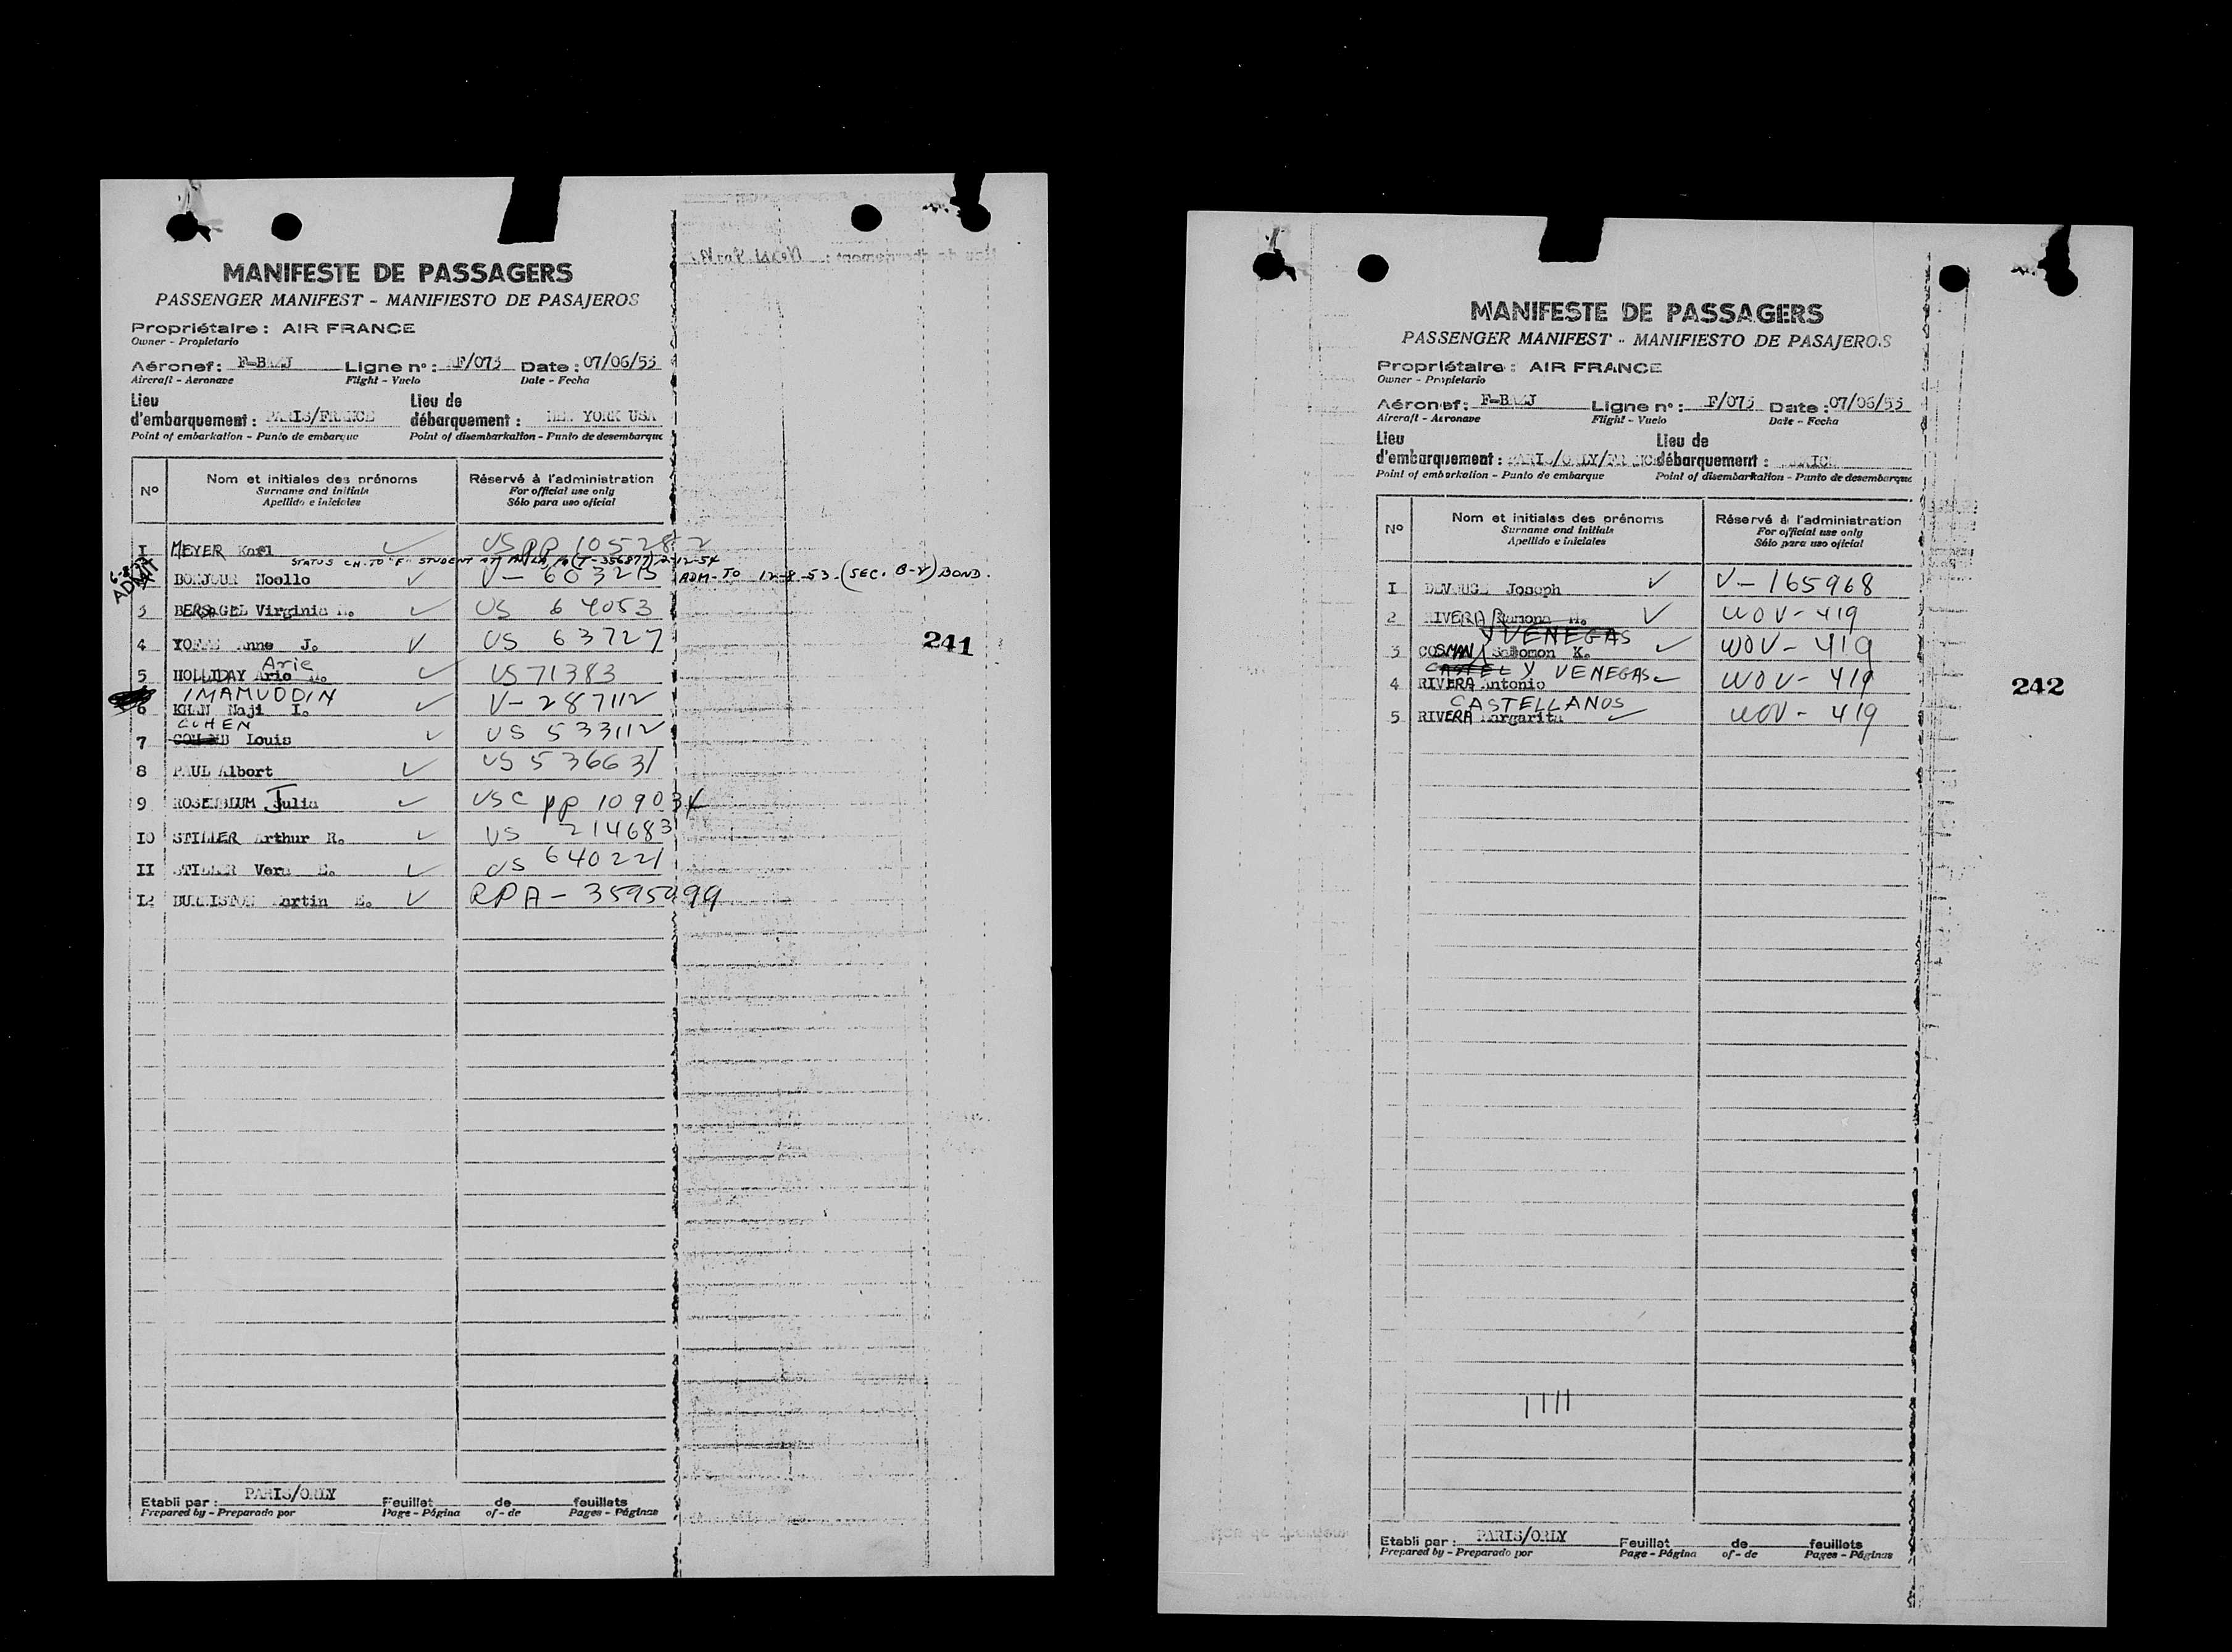 MANIFESTE DE PASSAGERS
PASSENGER MANIFEST - MANIFIESTO DE PASAJEROS
Propriétaire : AIR FRANCE
Owner - Propietario
Aéronef : Ligne n° : AF/073 Date : 07/06/53
Aircraft - Aeronave Flight - Vuelo Date - Fecha
Lieu d'embarquement : PARIS/FRANCE Lieu de débarquement : NEW YORK USA
Point of embarkation - Punto de embarque Point of disembarkation - Punto de desembarque
N° Nom et initiales des prénoms Réservé à l'administration
Surname and initials For official use only
Apellido e iniciales Sólo para uso oficial
I MEYER Karl ✓ US PP 105282
STATUS CH. TO "F" STUDENT (T-356877) 2-12-54
6-8 ADMIT BONJOUR Noelle ✓ V-603215 ADM-TO 12-8-53. (SEC. B-V) BOND.
3 BERSAGEL Virginia ✓ US 64053
4 Anne J. ✓ US 63727
Arie
5 HOLLIDAY Arie ✓ US 71383
IMAMUDDIN
6 KHAN Naji I. ✓ V-287112
COHEN
7 Louis ✓ US 533112
8 PAUL Albert ✓ US 536631
9 ROSENBLUM Julia ✓ USC PP 109034
10 STILLER Arthur R. ✓ US 214683
11 STILLER Vera E. ✓ US 640221
12 Martin E. ✓ RPA-3595099
241
Etabli par : PARIS/ORLY Feuillet de feuillets
Prepared by - Preparado por Page - Página of - de Pages - Páginas
MANIFESTE DE PASSAGERS
PASSENGER MANIFEST - MANIFIESTO DE PASAJEROS
Propriétaire : AIR FRANCE
Owner - Propietario
Aéronef : Ligne n° : F/073 Date : 07/06/53
Aircraft - Aeronave Flight - Vuelo Date - Fecha
Lieu d'embarquement : PARIS/ORLY/FRANCE Lieu de débarquement :
Point of embarkation - Punto de embarque Point of disembarkation - Punto de desembarque
N° Nom et initiales des prénoms Réservé à l'administration
Surname and initials For official use only
Apellido e iniciales Sólo para uso oficial
I Joseph ✓ V-165968
2 RIVERA Ramona M. ✓ WOV-419
Y VENEGAS
3 COSMAN Salomon K. ✓ WOV-419
CASTEL Y VENEGAS
4 RIVERA Antonio ✓ WOV-419
CASTELLANOS
5 RIVERA Margarita ✓ WOV-419
242
1111
Etabli par : PARIS/ORLY Feuillet de feuillets
Prepared by - Preparado por Page - Página of - de Pages - Páginas